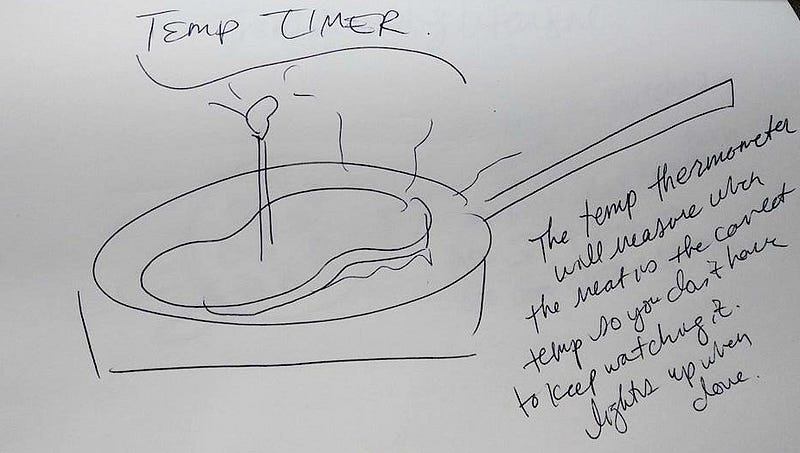 TEMP TIMER.
The temp thermometer
will measure when
the meat is the correct
temp so you don't have
to keep watching it.
lights up when
done.